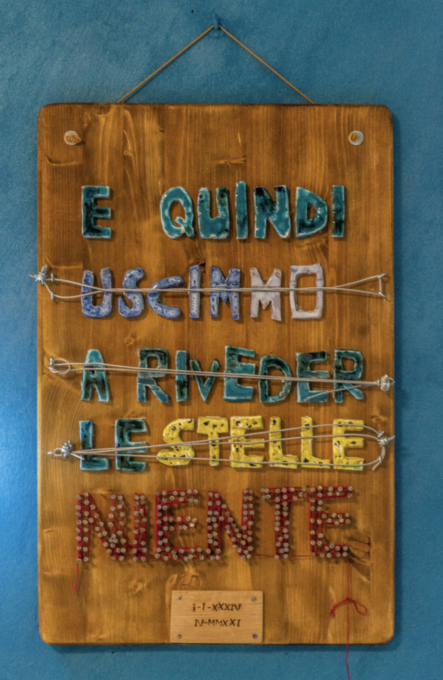 E QUINDI
USCIMMO
A RIVEDER
LE STELLE
NIENTE
I-I-XXXIV
IV-MMXXI